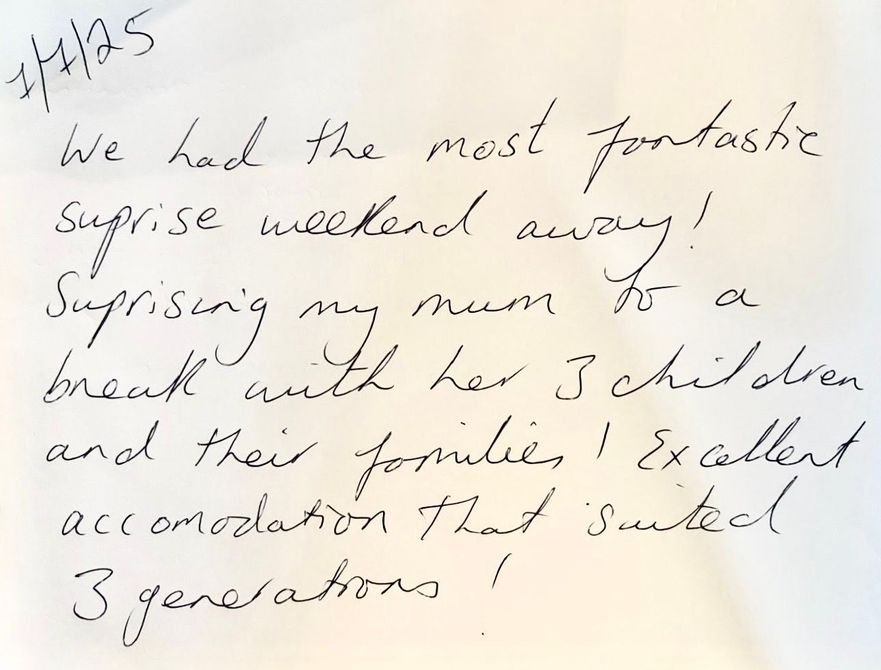 7/7/25
We had the most fantastic
suprise weekend away!
Suprising my mum to a
break with her 3 children
and their families! Excellent
accomodation that suited
3 generations!